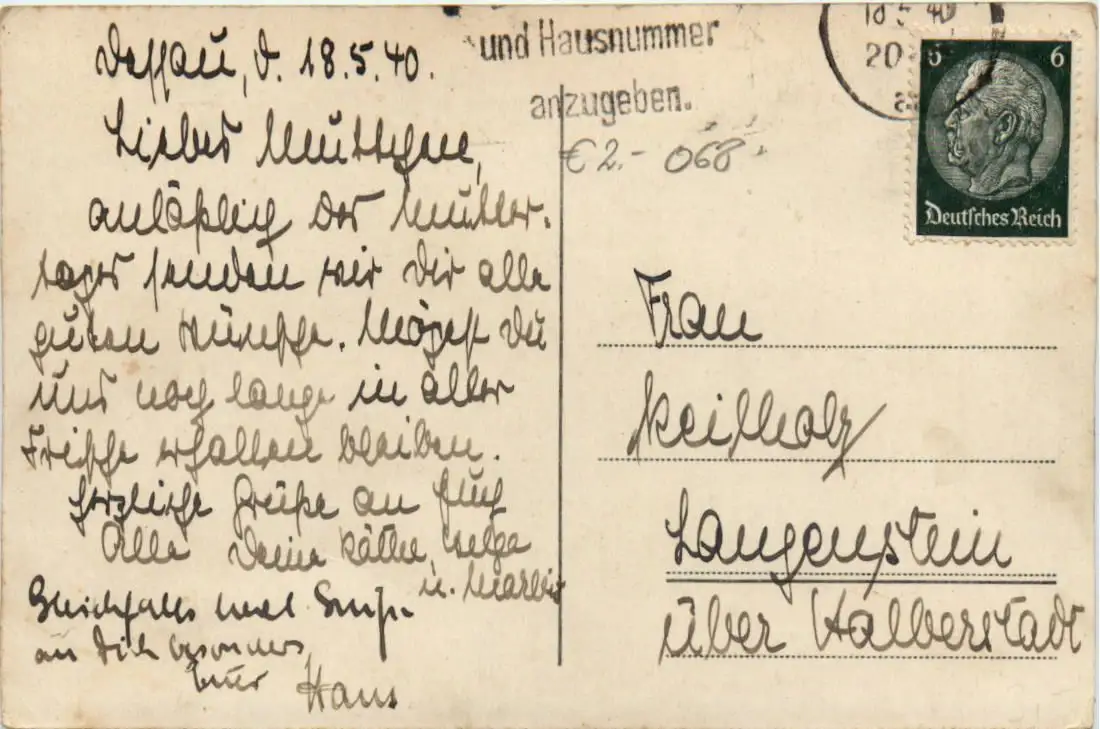 Dessau, d. 18.5.40.
Liebes Muttchen,
anläßlich des Mutter-
tages senden wir Dir alle
guten Wünsche. Mögest Du
uns noch lange in aller
Frische erhalten bleiben.
Herzliche Grüße an Euch
Alle Deine Käthe, Helga
u. Marlis
Gleichfalls
an Dich besonders
Euer Hans
und Hausnummer
anzugeben.
€ 2.- 068
18 5 40
20
6 6
Deutsches Reich
Frau
Keilholz
Langenstein
über Halberstadt